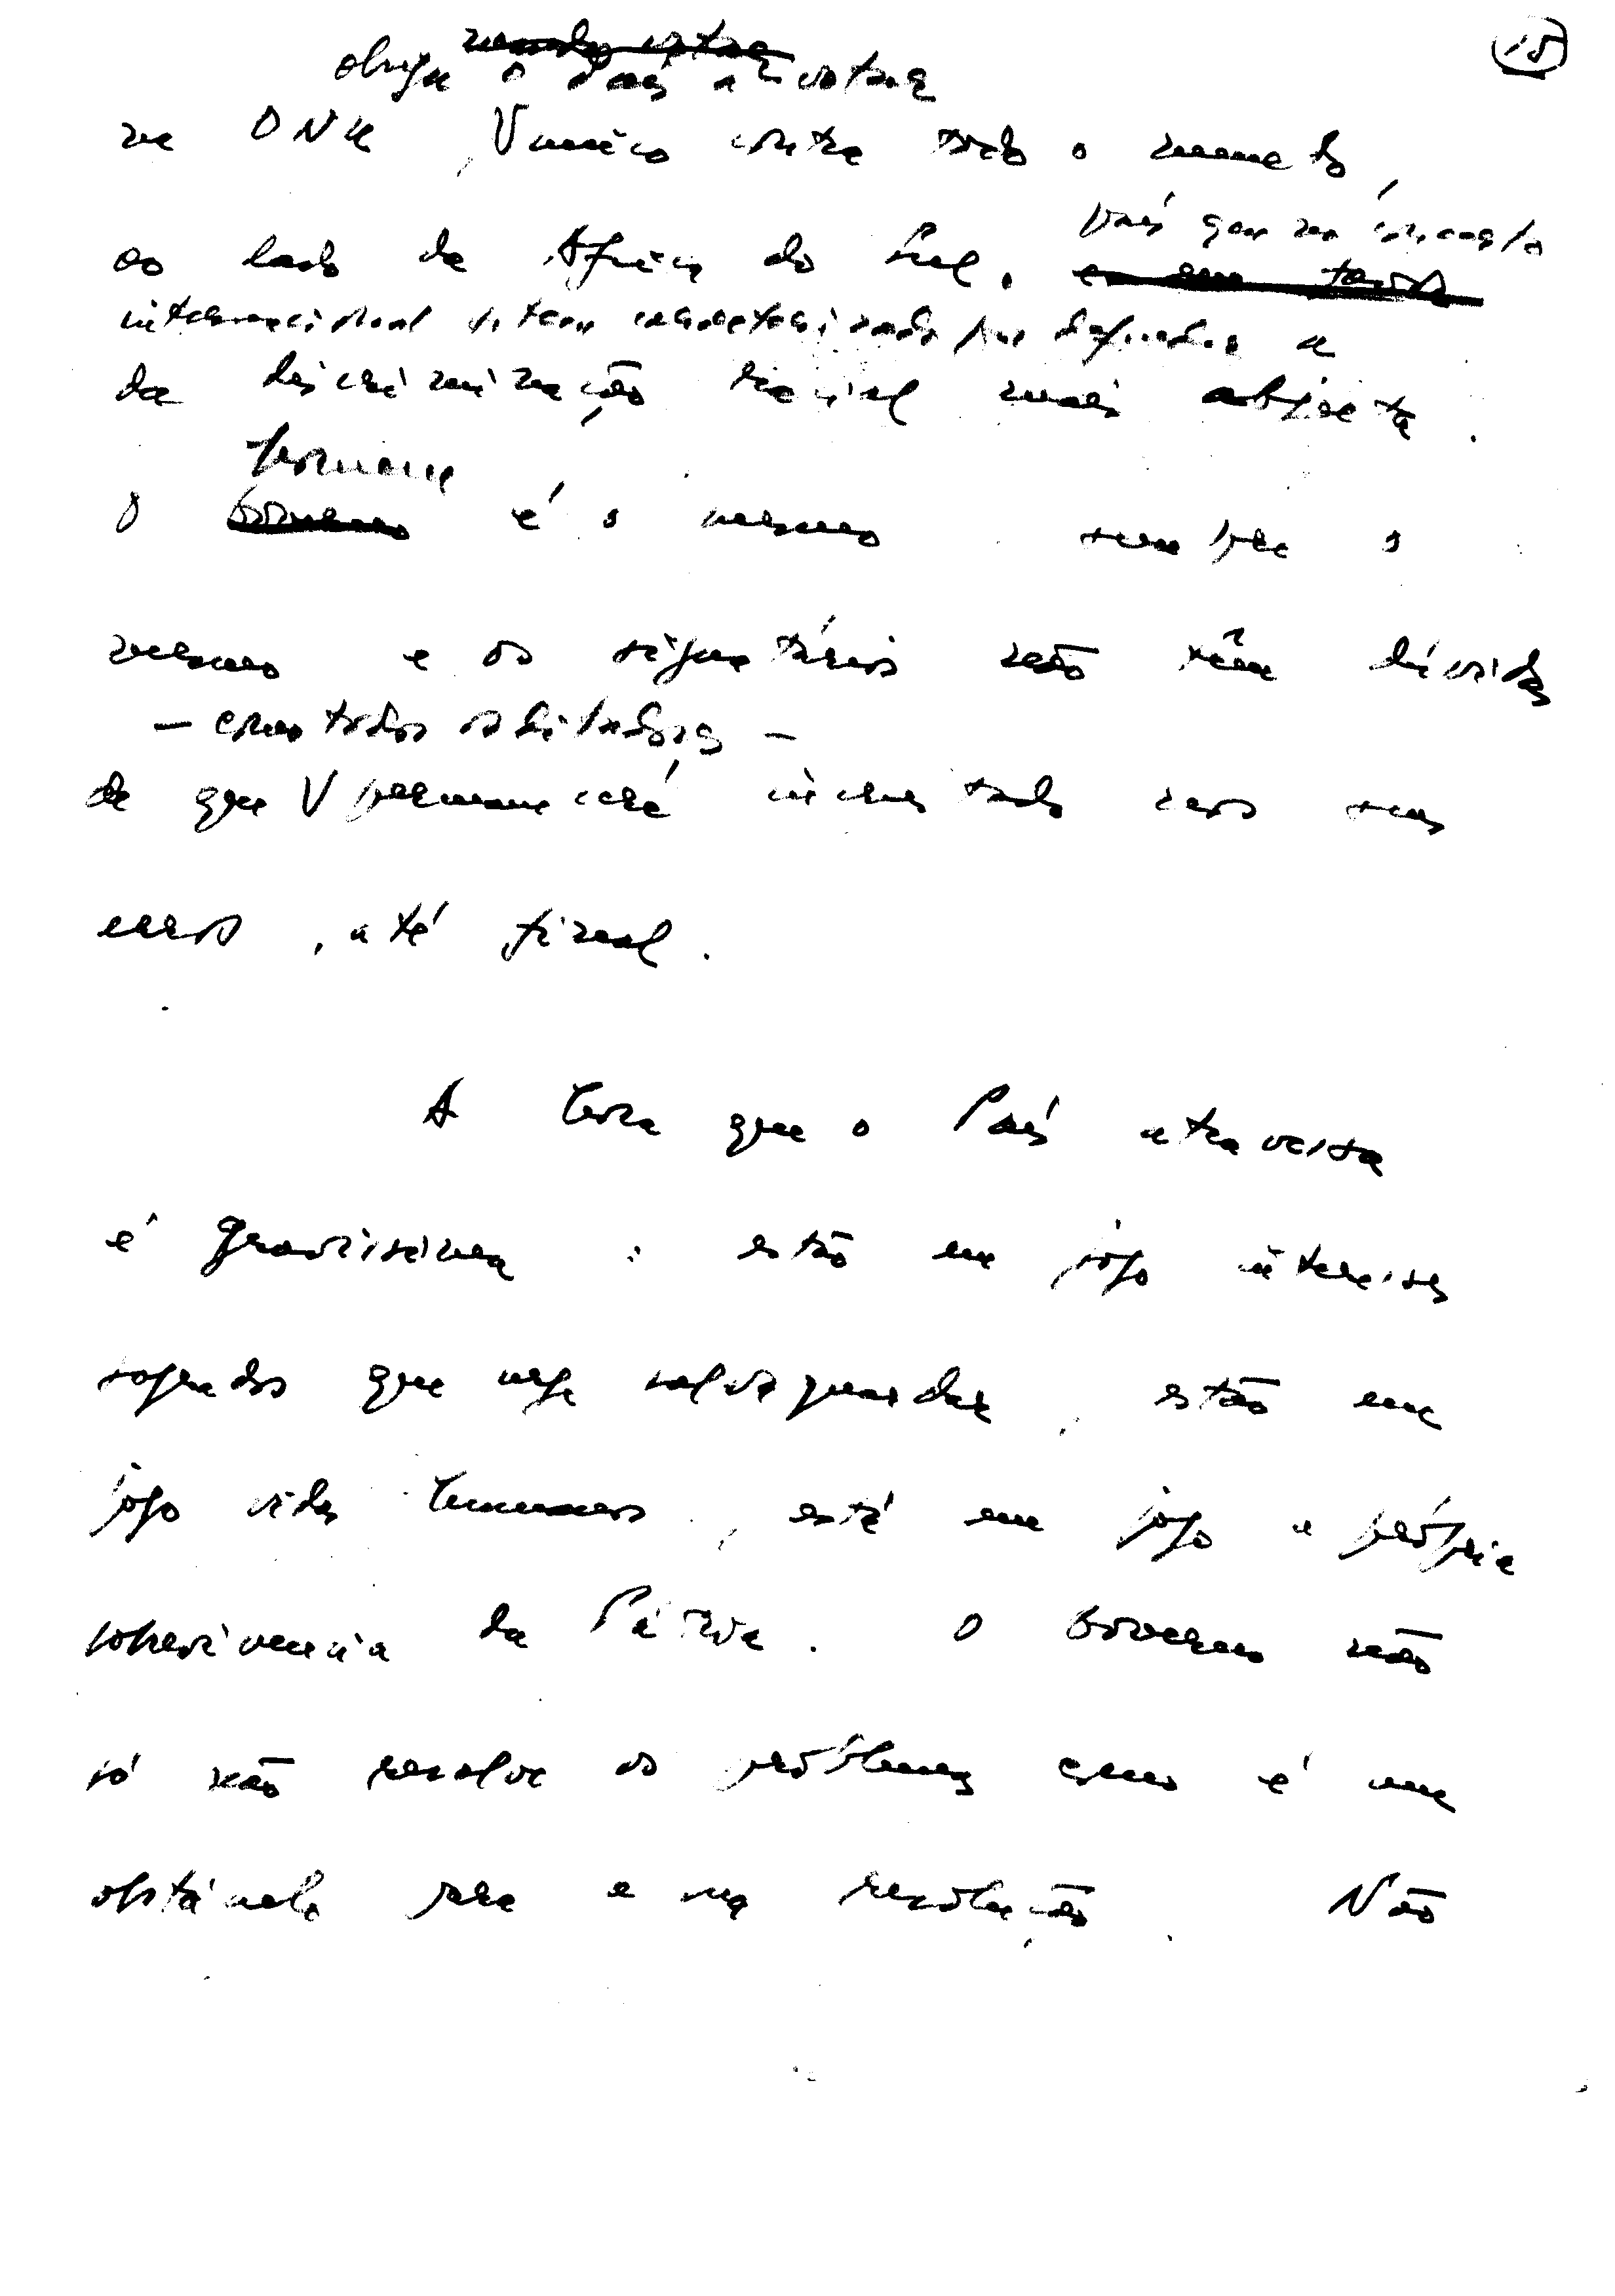 15
obriga o País a votar
na ONU, V único contra todo o mundo,
País que no concerto
ao lado da Africa do Sul,
internacional se tem caracterizado por defender a
da discriminação racial mais abjecta.
homem
O é o mesmo sempre o
mesmo e os signatários não têm dúvidas
— como todos os ditadores —
de que V permanecerá incrustado nos seus
erros, até final.
A hora que o País atravessa
é gravissima: estão em jogo interesses
sagrados que urge salvaguardar, estão em
jogo vidas humanas, está em jogo a própria
sobrevivencia da Pátria. O Governo não
só não resolve os problemas como é um
obstáculo para a sua resolução. Não